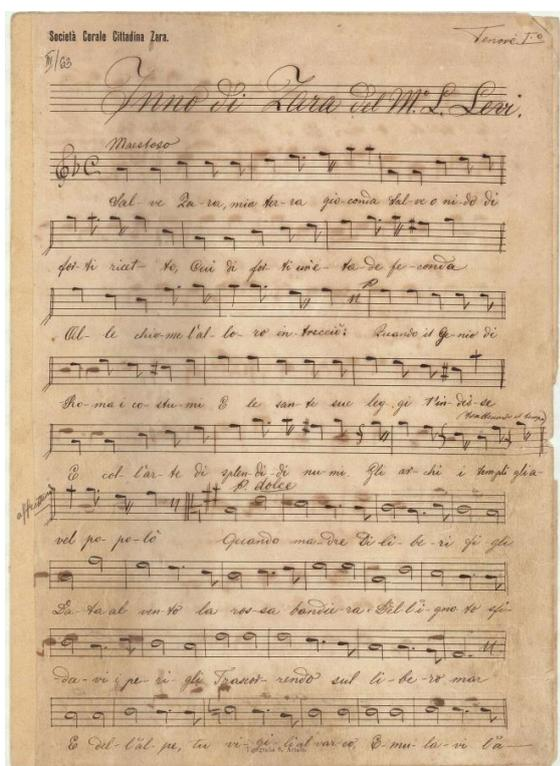 Società Corale Cittadina Zara.
Tenore I.o
III/63
Inno di Zara del M.o L. Levi.
Maestoso
Sal-ve Za-ra, mia ter-ra gio-conda Sal-ve o ni-do di
for-ti ricet-to, Cui di for-ti un'e-ta-de fe-conda
p
Al-le chio-me l'al-lo-ro in-trecciò: Quando il Ge-nio di
Ro-ma i co-stu-mi E le san-te sue leg-gi t'in-dis-se
trattenendo il tempo
E col-l'ar-te di splen-di-di nu-mi Gli ar-chi i templi glia-
affrettando
p. dolce
vel po-po-lò Quando ma-dre Di li-be-ri fi-gli
Da-ta al ven-to la ros-sa bandie-ra Del-l'i-gno-to sfi-
da-vi i pe-ri-gli Trascor-rendo sul li-be-ro mar
E del-l'al-pe, tu vi-gi-li al var-co, E-mu-la-vi l'a-